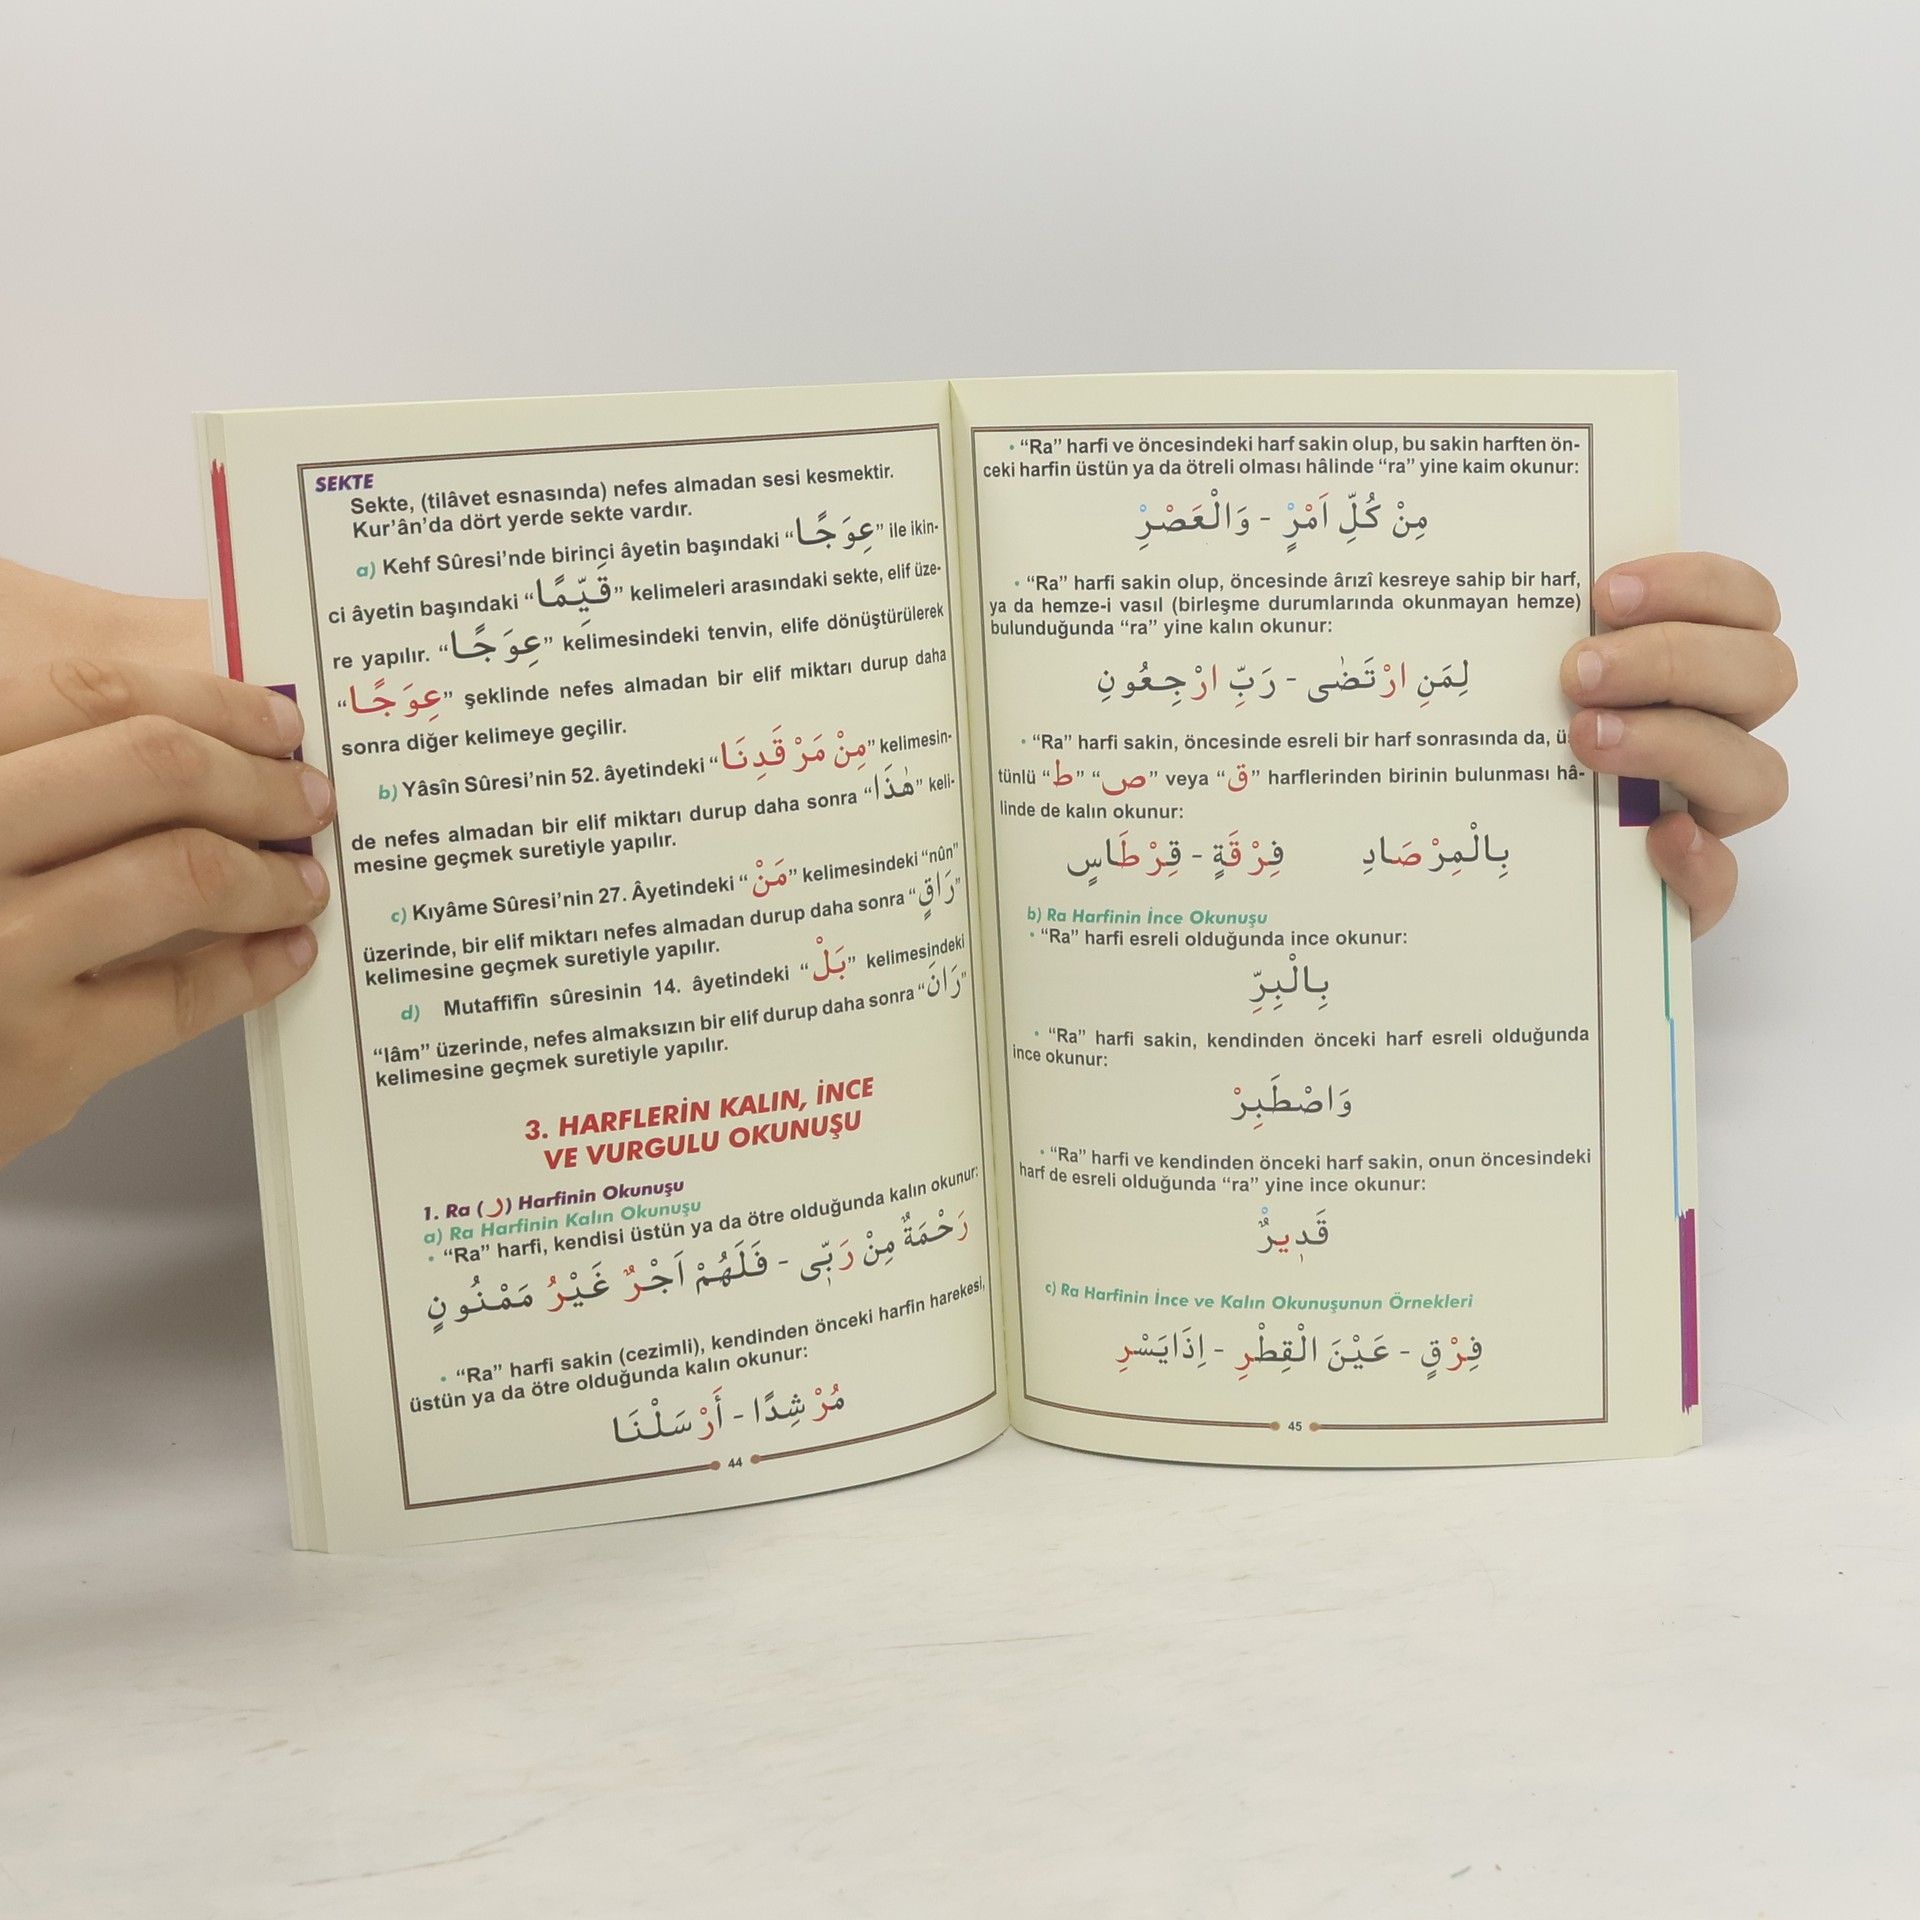 SEKTE
Sekte, (tilâvet esnasında) nefes almadan sesi kesmektir.
Kur’ân’da dört yerde sekte vardır.
a) Kehf Sûresi’nde birinçi âyetin başındaki “عِوَجًا” ile ikin-
ci âyetin başındaki “قَيِّمًا” kelimeleri arasındaki sekte, elif üze-
re yapılır. “عِوَجًا” kelimesindeki tenvin, elife dönüştürülerek
“عِوَجًا” şeklinde nefes almadan bir elif miktarı durup daha
sonra diğer kelimeye geçilir.
b) Yâsîn Sûresi’nin 52. âyetindeki “مِنْ مَرْقَدِنَا” kelimesin-
de nefes almadan bir elif miktarı durup daha sonra “هٰذَا” keli-
mesine geçmek suretiyle yapılır.
c) Kıyâme Sûresi’nin 27. Âyetindeki “مَنْ” kelimesindeki “nûn”
üzerinde, bir elif miktarı nefes almadan durup daha sonra “رَاقٍ”
kelimesine geçmek suretiyle yapılır.
d) Mutaffifîn sûresinin 14. âyetindeki “بَلْ” kelimesindeki
“lâm” üzerinde, nefes almaksızın bir elif durup daha sonra “رَانَ”
kelimesine geçmek suretiyle yapılır.
3. HARFLERİN KALIN, İNCE
VE VURGULU OKUNUŞU
1. Ra (ر) Harfinin Okunuşu
a) Ra Harfinin Kalın Okunuşu
• “Ra” harfi, kendisi üstün ya da ötre olduğunda kalın okunur:
رَحْمَةٌ مِنْ رَبّٖى - فَلَهُمْ اَجْرٌ غَيْرُ مَمْنُونٍ
• “Ra” harfi sakin (cezimli), kendinden önceki harfin harekesi,
üstün ya da ötre olduğunda kalın okunur:
مُرْشِدًا - أَرْسَلْنَا
44
• “Ra” harfi ve öncesindeki harf sakin olup, bu sakin harften ön-
ceki harfin üstün ya da ötreli olması hâlinde “ra” yine kaim okunur:
مِنْ كُلِّ اَمْرٍ - وَالْعَصْرِ
• “Ra” harfi sakin olup, öncesinde ârızî kesreye sahip bir harf,
ya da hemze-i vasıl (birleşme durumlarında okunmayan hemze)
bulunduğunda “ra” yine kalın okunur:
لِمَنِ ارْتَضٰى - رَبِّ ارْجِعُونِ
• “Ra” harfi sakin, öncesinde esreli bir harf sonrasında da, üs
tünlü “ط” “ص” veya “ق” harflerinden birinin bulunması hâ-
linde de kalın okunur:
بِالْمِرْصَادِ فِرْقَةٍ - قِرْطَاسٍ
b) Ra Harfinin İnce Okunuşu
• “Ra” harfi esreli olduğunda ince okunur:
بِالْبِرِّ
• “Ra” harfi sakin, kendinden önceki harf esreli olduğunda
ince okunur:
وَاصْطَبِرْ
• “Ra” harfi ve kendinden önceki harf sakin, onun öncesindeki
harf de esreli olduğunda “ra” yine ince okunur:
قَدٖيرٌ
c) Ra Harfinin İnce ve Kalın Okunuşunun Örnekleri
فِرْقٍ - عَيْنَ الْقِطْرِ - اِذَايَسْرِ
45